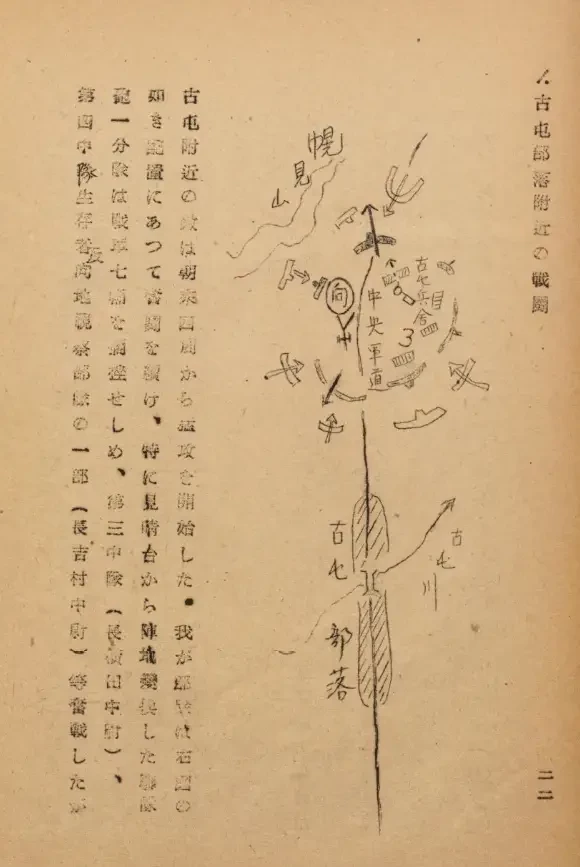 古屯部落附近の戰鬪
幌見山
古屯兵舎
向
中央軍道
3
古屯川
古屯
部落
古屯附近の敵は朝來四周から猛攻を開始した。我が部隊は右図の
如き配置にあつて奮鬪を續け、特に見晴台から陣地變換した聯隊
砲一分隊は戰車七輛を擱挫せしめ、第三中隊(長 田中尉)、
第四中隊生存者 地 察部隊の一部(長吉村中尉)等奮戰したが
二二